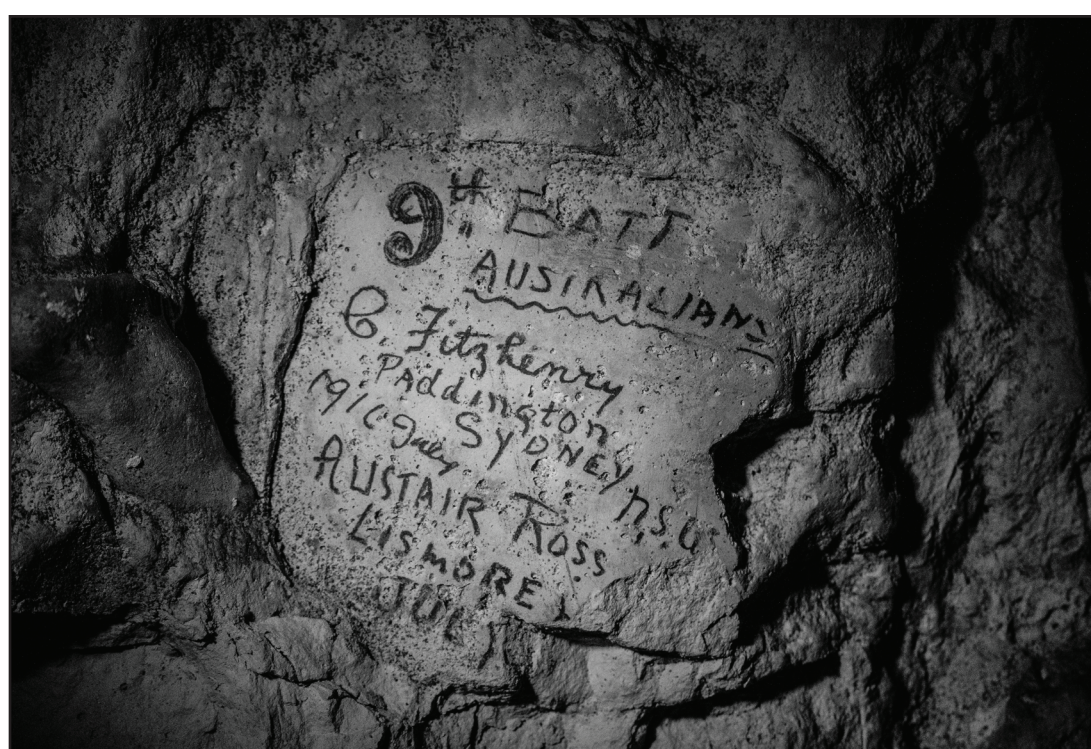 9th BATT
AUSTRALIANS
C. Fitzhenry
PADDington
SYDNEY N.S.W
1916 July
ALISTAIR ROSS
LISMORE
JUL